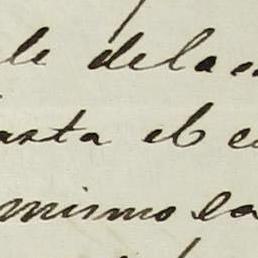 le dela
asta el
mismo ea